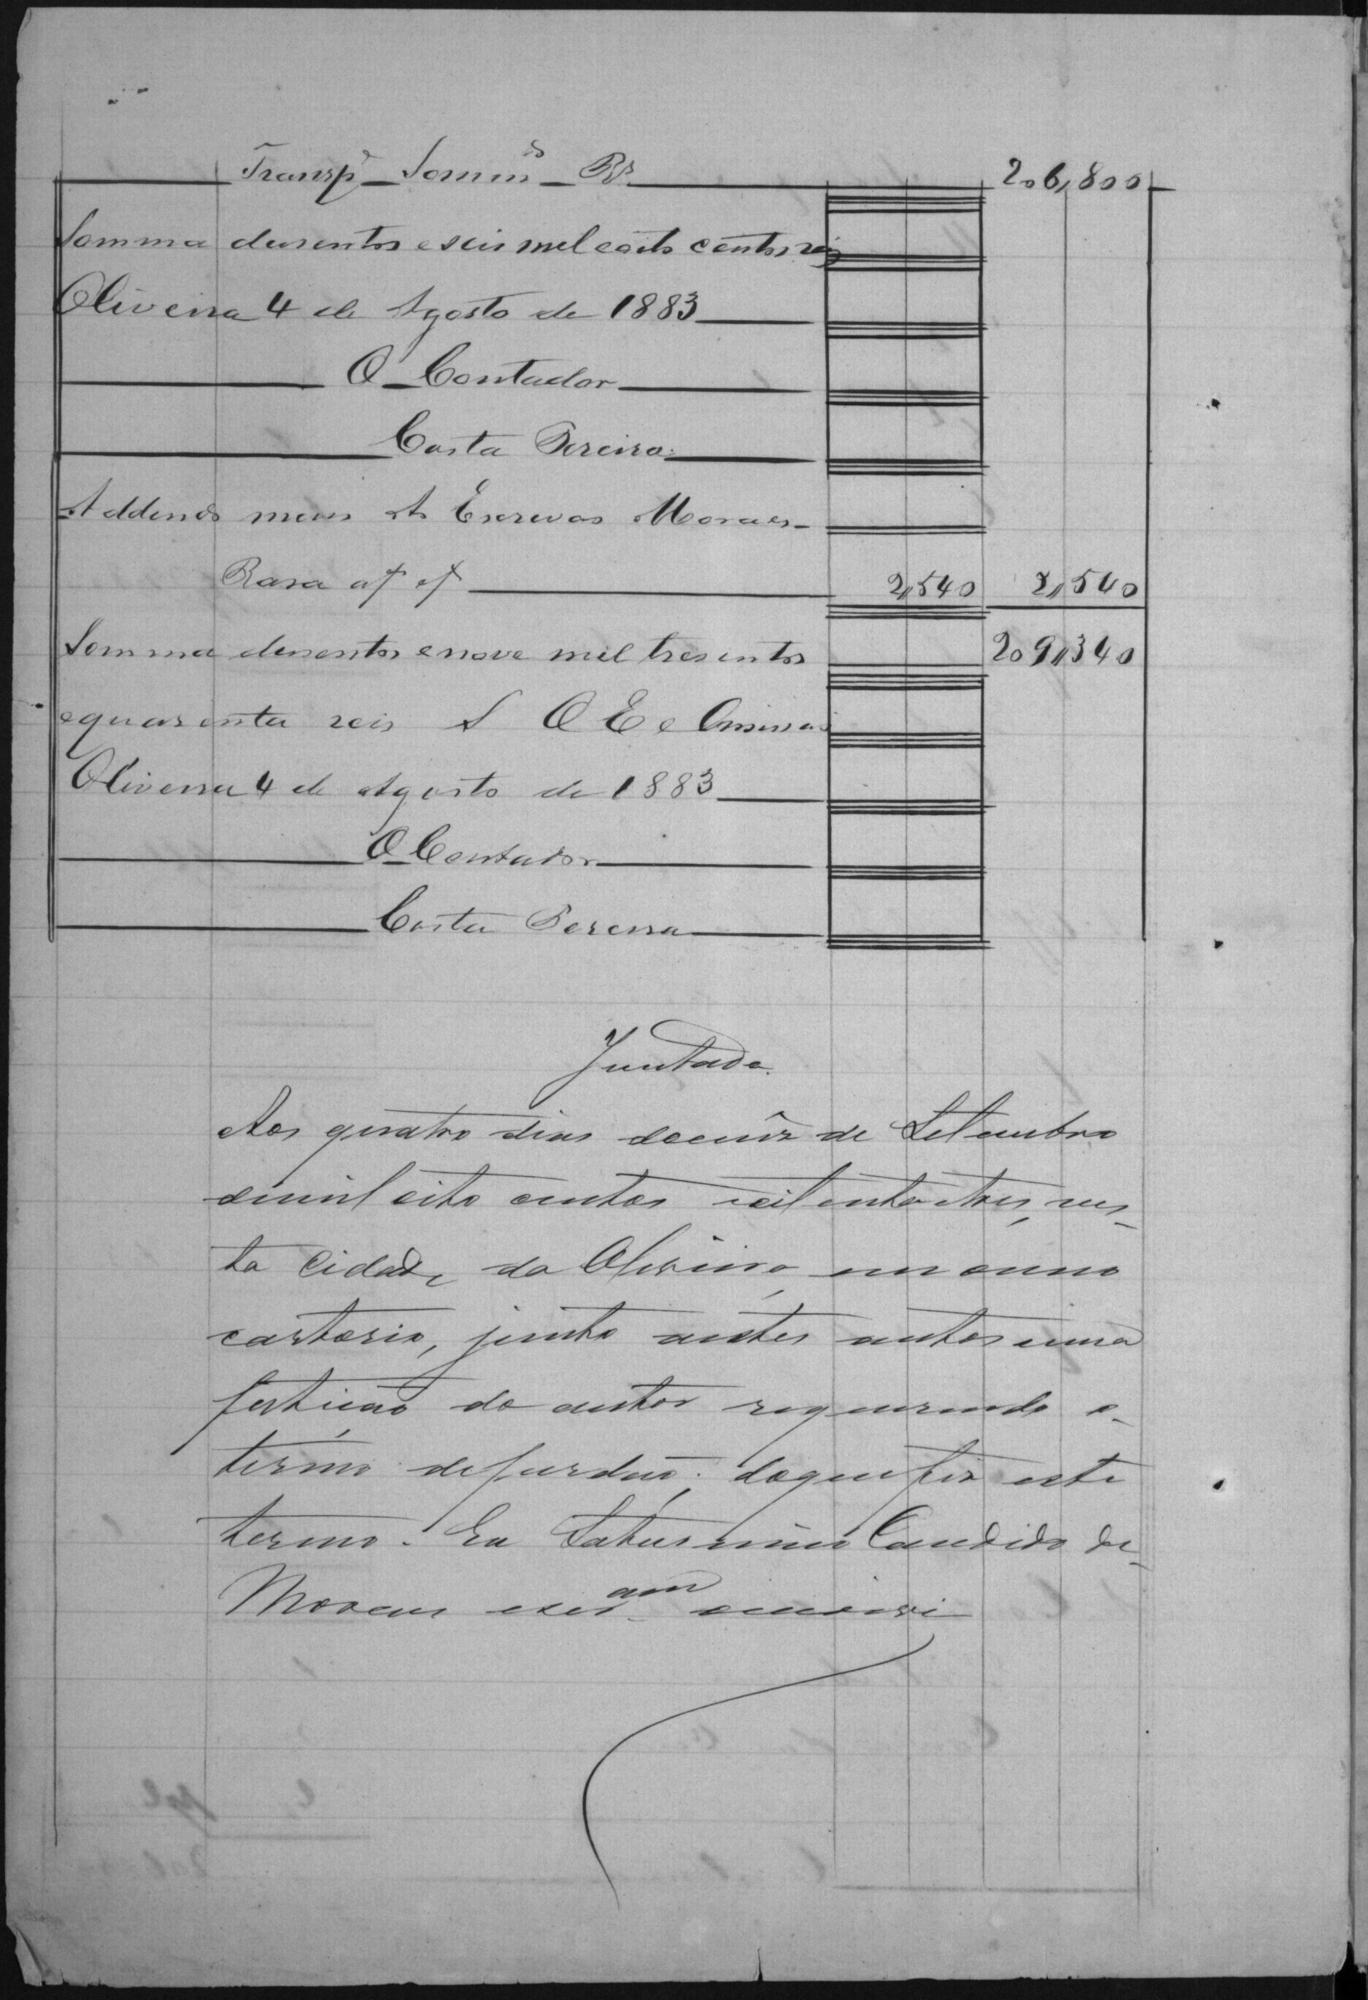 Transpe Sommas Rs 206,800
Somma dusentos e seis mil e oito centos reis
Oliveira 4 de Agosto de 1883
O Contador
Costa Pereira
Addendo mais Ao Escrevao Moraes
Rasa 2,540 2,540
Somma dusentos e nove mil tresentos 209,340
e quarenta reis S O E e Omissão
Oliveira 4 de Agosto de 1883
O Contador
Costa Pereira
Juntada
Aos quatro dias do mez de Setembro
de mil oito centos e oitenta e tres, nes-
ta Cidade da Oliveira em o meu
cartorio, junto a estes autos uma
petição do autor requerendo o
termo de perdão; do que fiz este
termo. Eu Saturnino Candido de
Moraes escram o escrevi